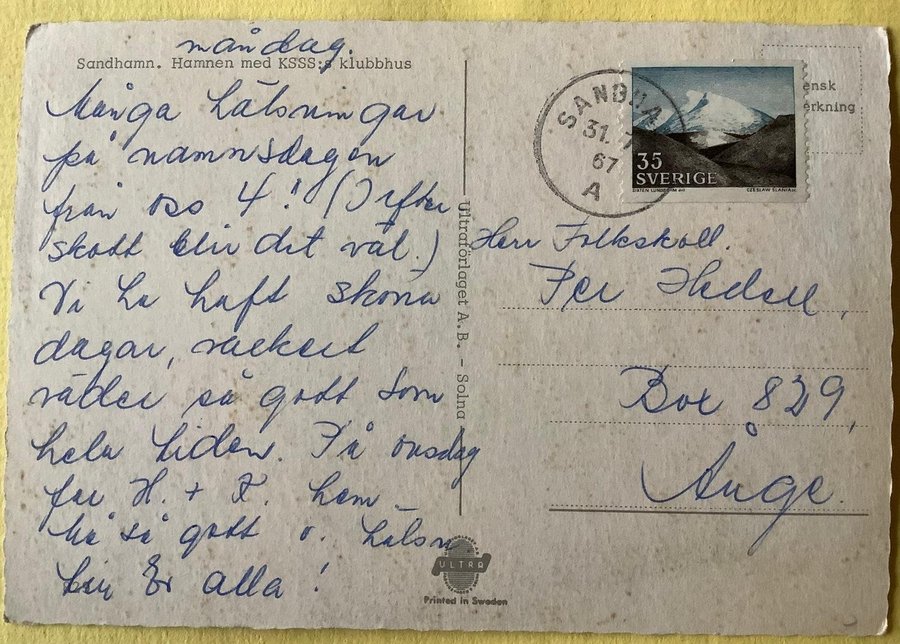 måndag.
Sandhamn. Hamnen med KSSS:s klubbhus
Många hälsningar
på namnsdagen
från oss 4! (I efter
skott blir det väl.)
Vi ha haft sköna
dagar, vackert
väder så gott som
hela tiden. På onsdag
far H. + F. hem
Må så gott o. hälsn
Er alla!
Ultraförlaget A.B. - Solna
SANDHA
31. 7
67
A
35
SVERIGE
CZESLAW SLANIA
ensk
erkning
Herr Folkskoll.
Per Hedell,
Box 829,
Ånge.
ULTRA
Printed in Sweden